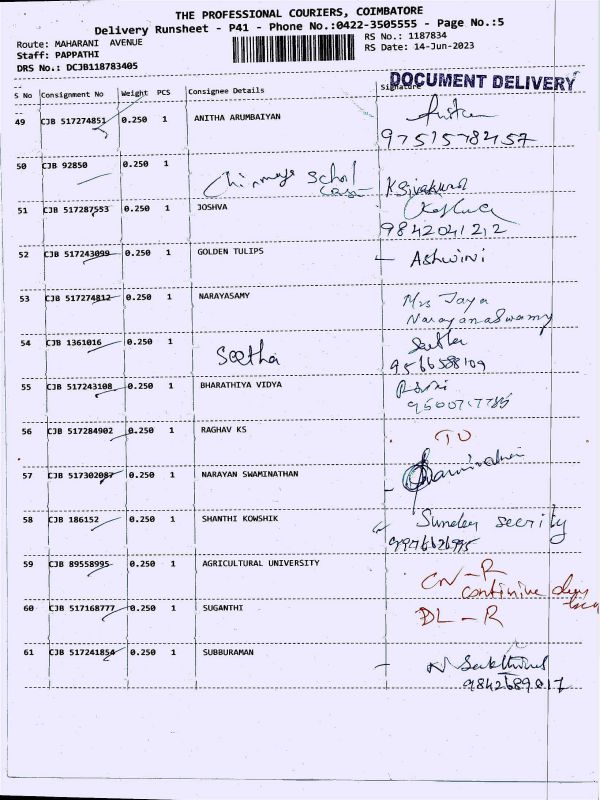 THE PROFESSIONAL COURIERS, COIMBATORE
Delivery Runsheet - P41 - Phone No.:0422-3505555 - Page No.:5
Route: MAHARANI AVENUE
RS No.: 1187834
Staff: PAPPATHI
RS Date: 14-Jun-2023
DRS No.: DCJB118783405
DOCUMENT DELIVERY
S No Consignment No Weight PCS Consignee Details Signature
49 CJB 517274851 0.250 1 ANITHA ARUMBAIYAN
9751578457
50 CJB 92850 0.250 1
School K Sivakumar
51 CJB 517287553 0.250 1 JOSHVA
9842041212
52 CJB 517243099 0.250 1 GOLDEN TULIPS
- Ashwini
53 CJB 517274812 0.250 1 NARAYASAMY
Mrs Jaya
Narayanaswamy
54 CJB 1361016 0.250 1
Seetha Seetha
9566588109
55 CJB 517243108 0.250 1 BHARATHIYA VIDYA
56 CJB 517284902 0.250 1 RAGHAV KS
57 CJB 517302087 0.250 1 NARAYAN SWAMINATHAN
58 CJB 186152 0.250 1 SHANTHI KOWSHIK
59 CJB 89558995 0.250 1 AGRICULTURAL UNIVERSITY
CN - R
60 CJB 517168777 0.250 1 SUGANTHI
DL - R
61 CJB 517241854 0.250 1 SUBBURAMAN
9842689017